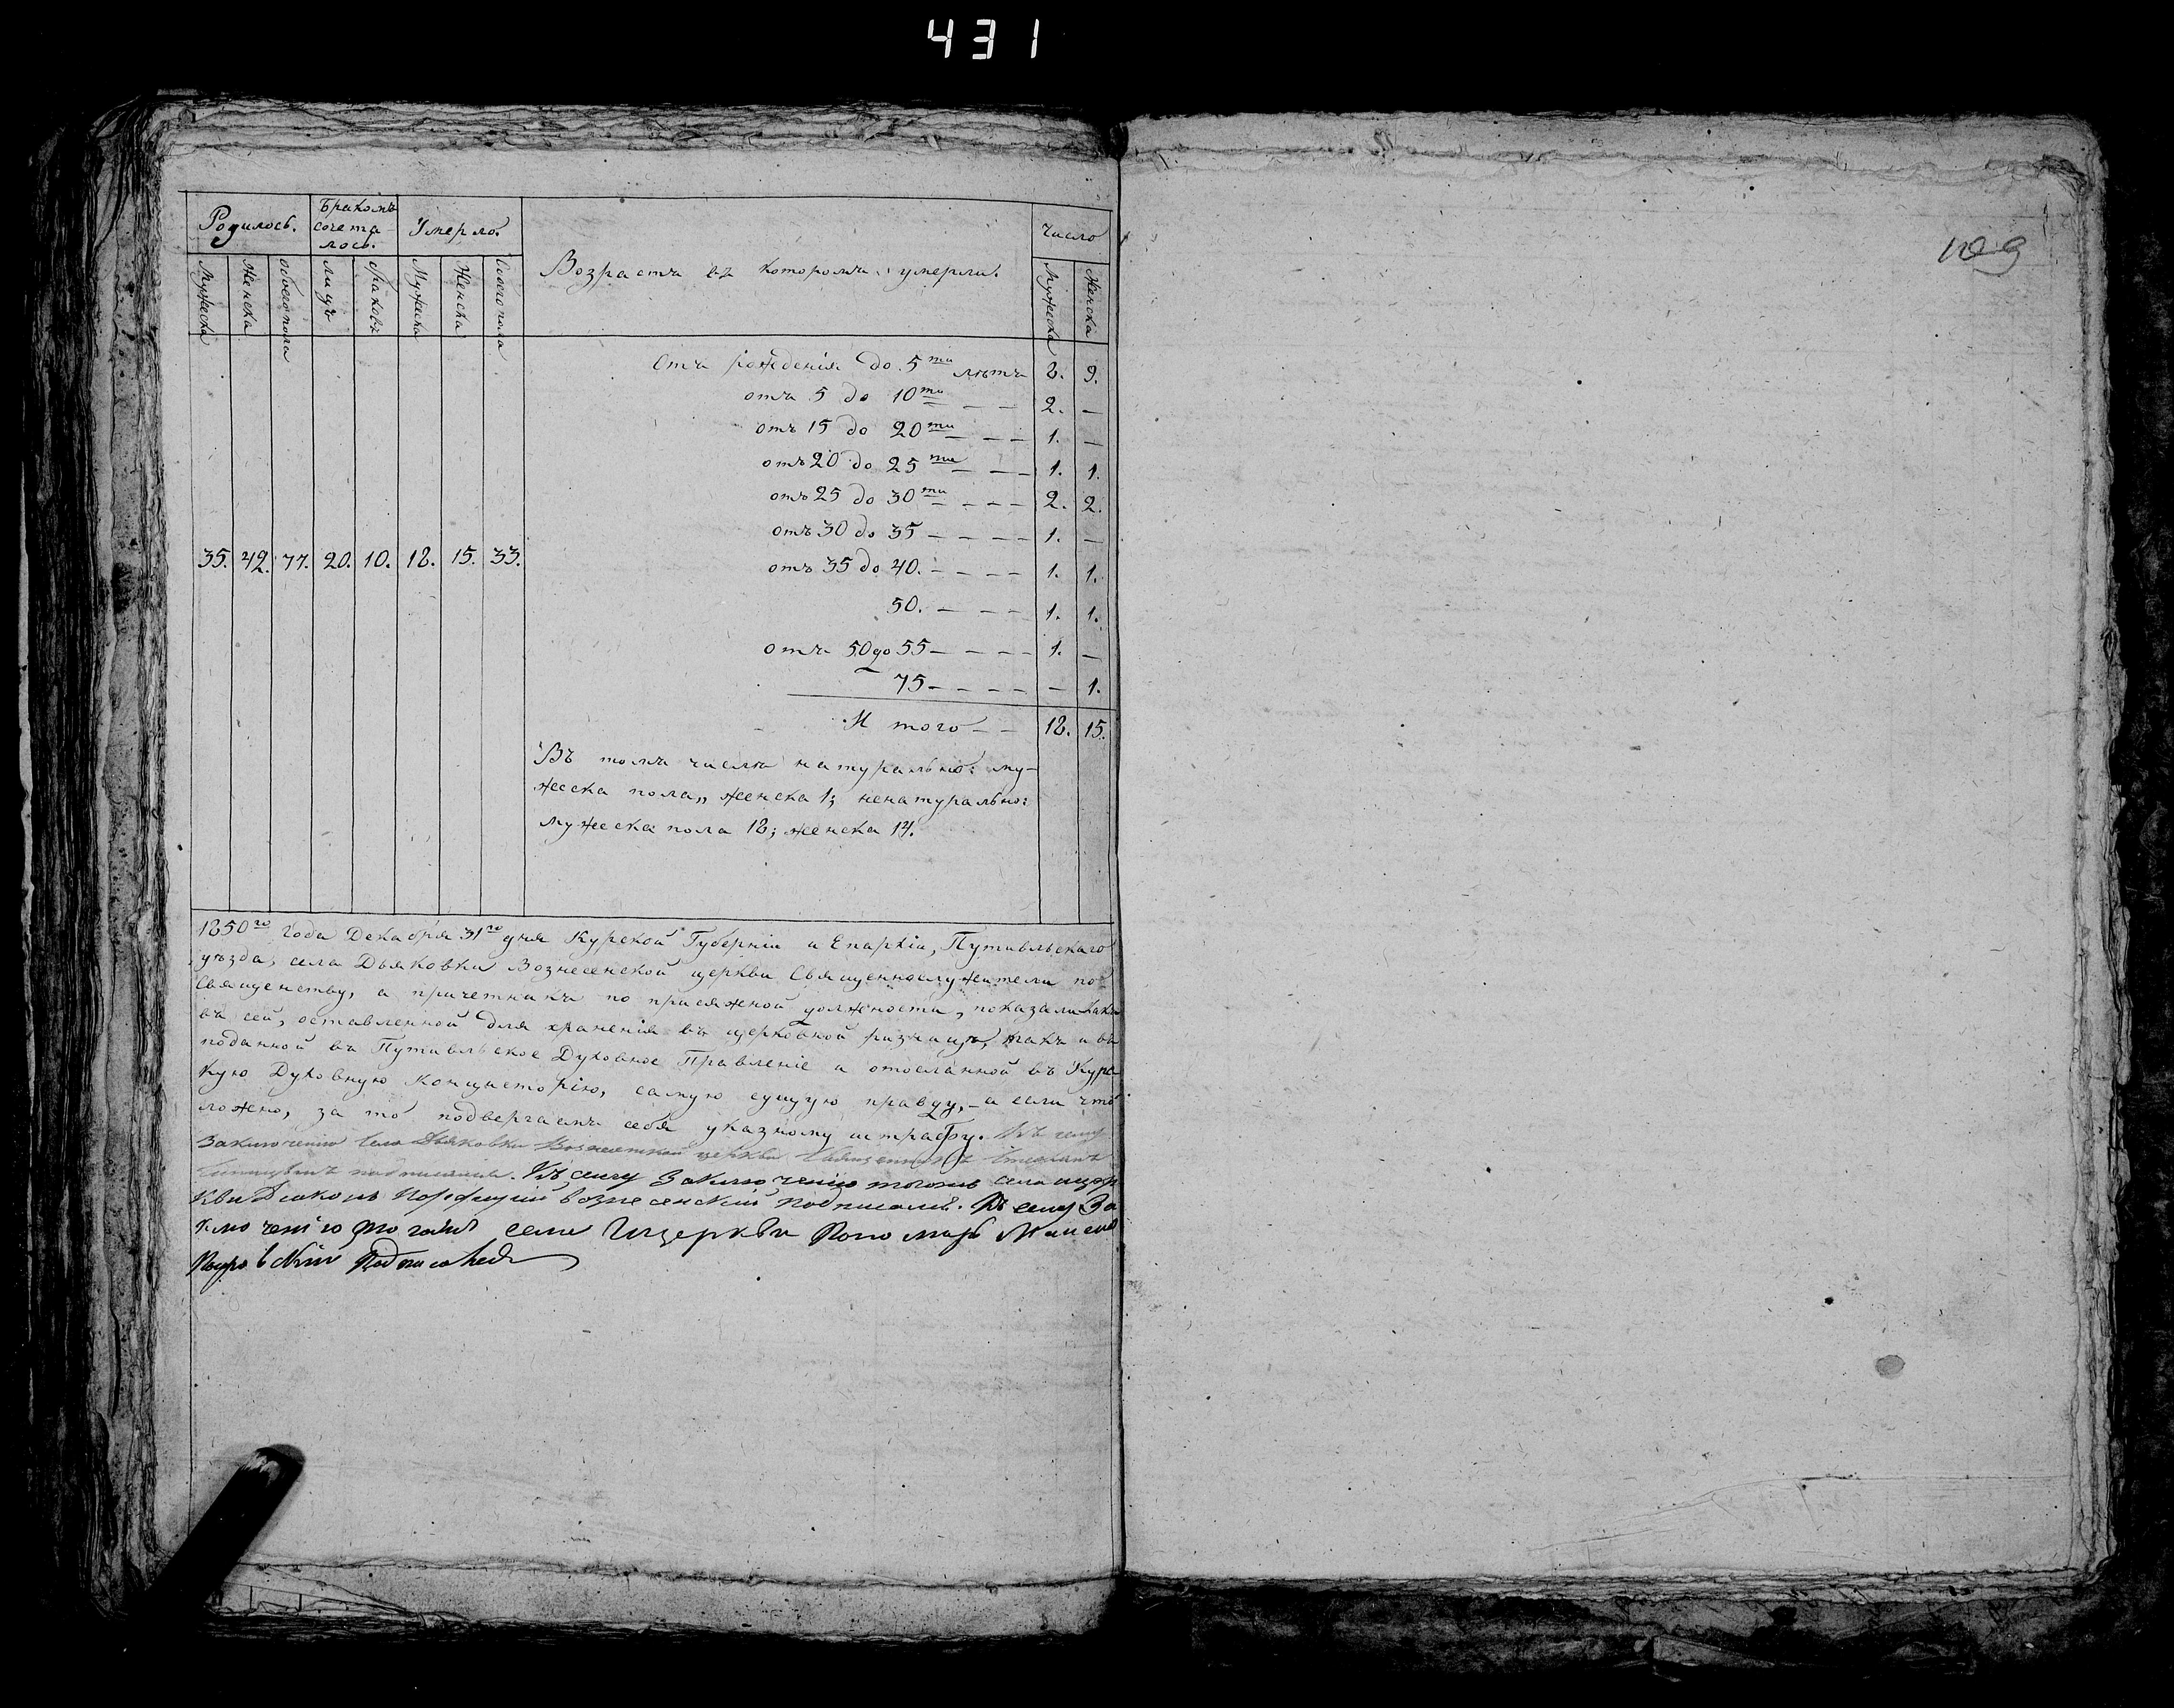 431
109
Родилось.
Бракомъ
сочета-
лось.
Умерло.
Возрастъ въ которомъ умерли.
Число
Мужеска
Женска
Обоего пола
Лицъ
Браковъ
Мужеска
Женска
Обоего пола
Мужеска
Женска
Отъ рожденія до 5ти лѣтъ 8. 9.
отъ 5 до 10ти — — 2. —
отъ 15 до 20ти — — — 1. —
отъ 20 до 25ти — — — 1. 1.
отъ 25 до 30ти — — — 2. 2.
отъ 30 до 35 — — — — 1. —
35. 42. 77. 20. 10. 18. 15. 33.
отъ 35 до 40. — — — — 1. 1.
50. — — — — 1. 1.
отъ 50 до 55 — — — — 1. —
75 — — — — — 1.
И того — — 18. 15.
Въ томъ числѣ натурально: му-
жеска пола „ женска 1; ненатурально:
мужеска пола 18; женска 14.
1850го года Декабря 31го дня Курской Губерніи и Епархіи, Путивльскаго
уѣзда, села Дьяковки Вознесенской церкви Священнослужители по
Священству, а причетникъ по присяжной должности, показали какъ
въ сей, оставленной для храненія въ церковной ризницѣ, такъ и въ
поданной въ Путивльское Духовное Правленіе и отосланной въ Курс-
кую Духовную Консисторію, самую сущую правду, — а если что
ложено, за то подвергаемъ себя указному штрафу. Къ сему
заключенію села Дьяковки Вознесенской церкви Священникъ Стефанъ
подписался. Къ сему заключенію тогожъ села цер
кви Діаконъ Порфирій Вознесенскій подписался. Къ сему За
ключенію тогожъ села ицеркви Пономарь
Подписался